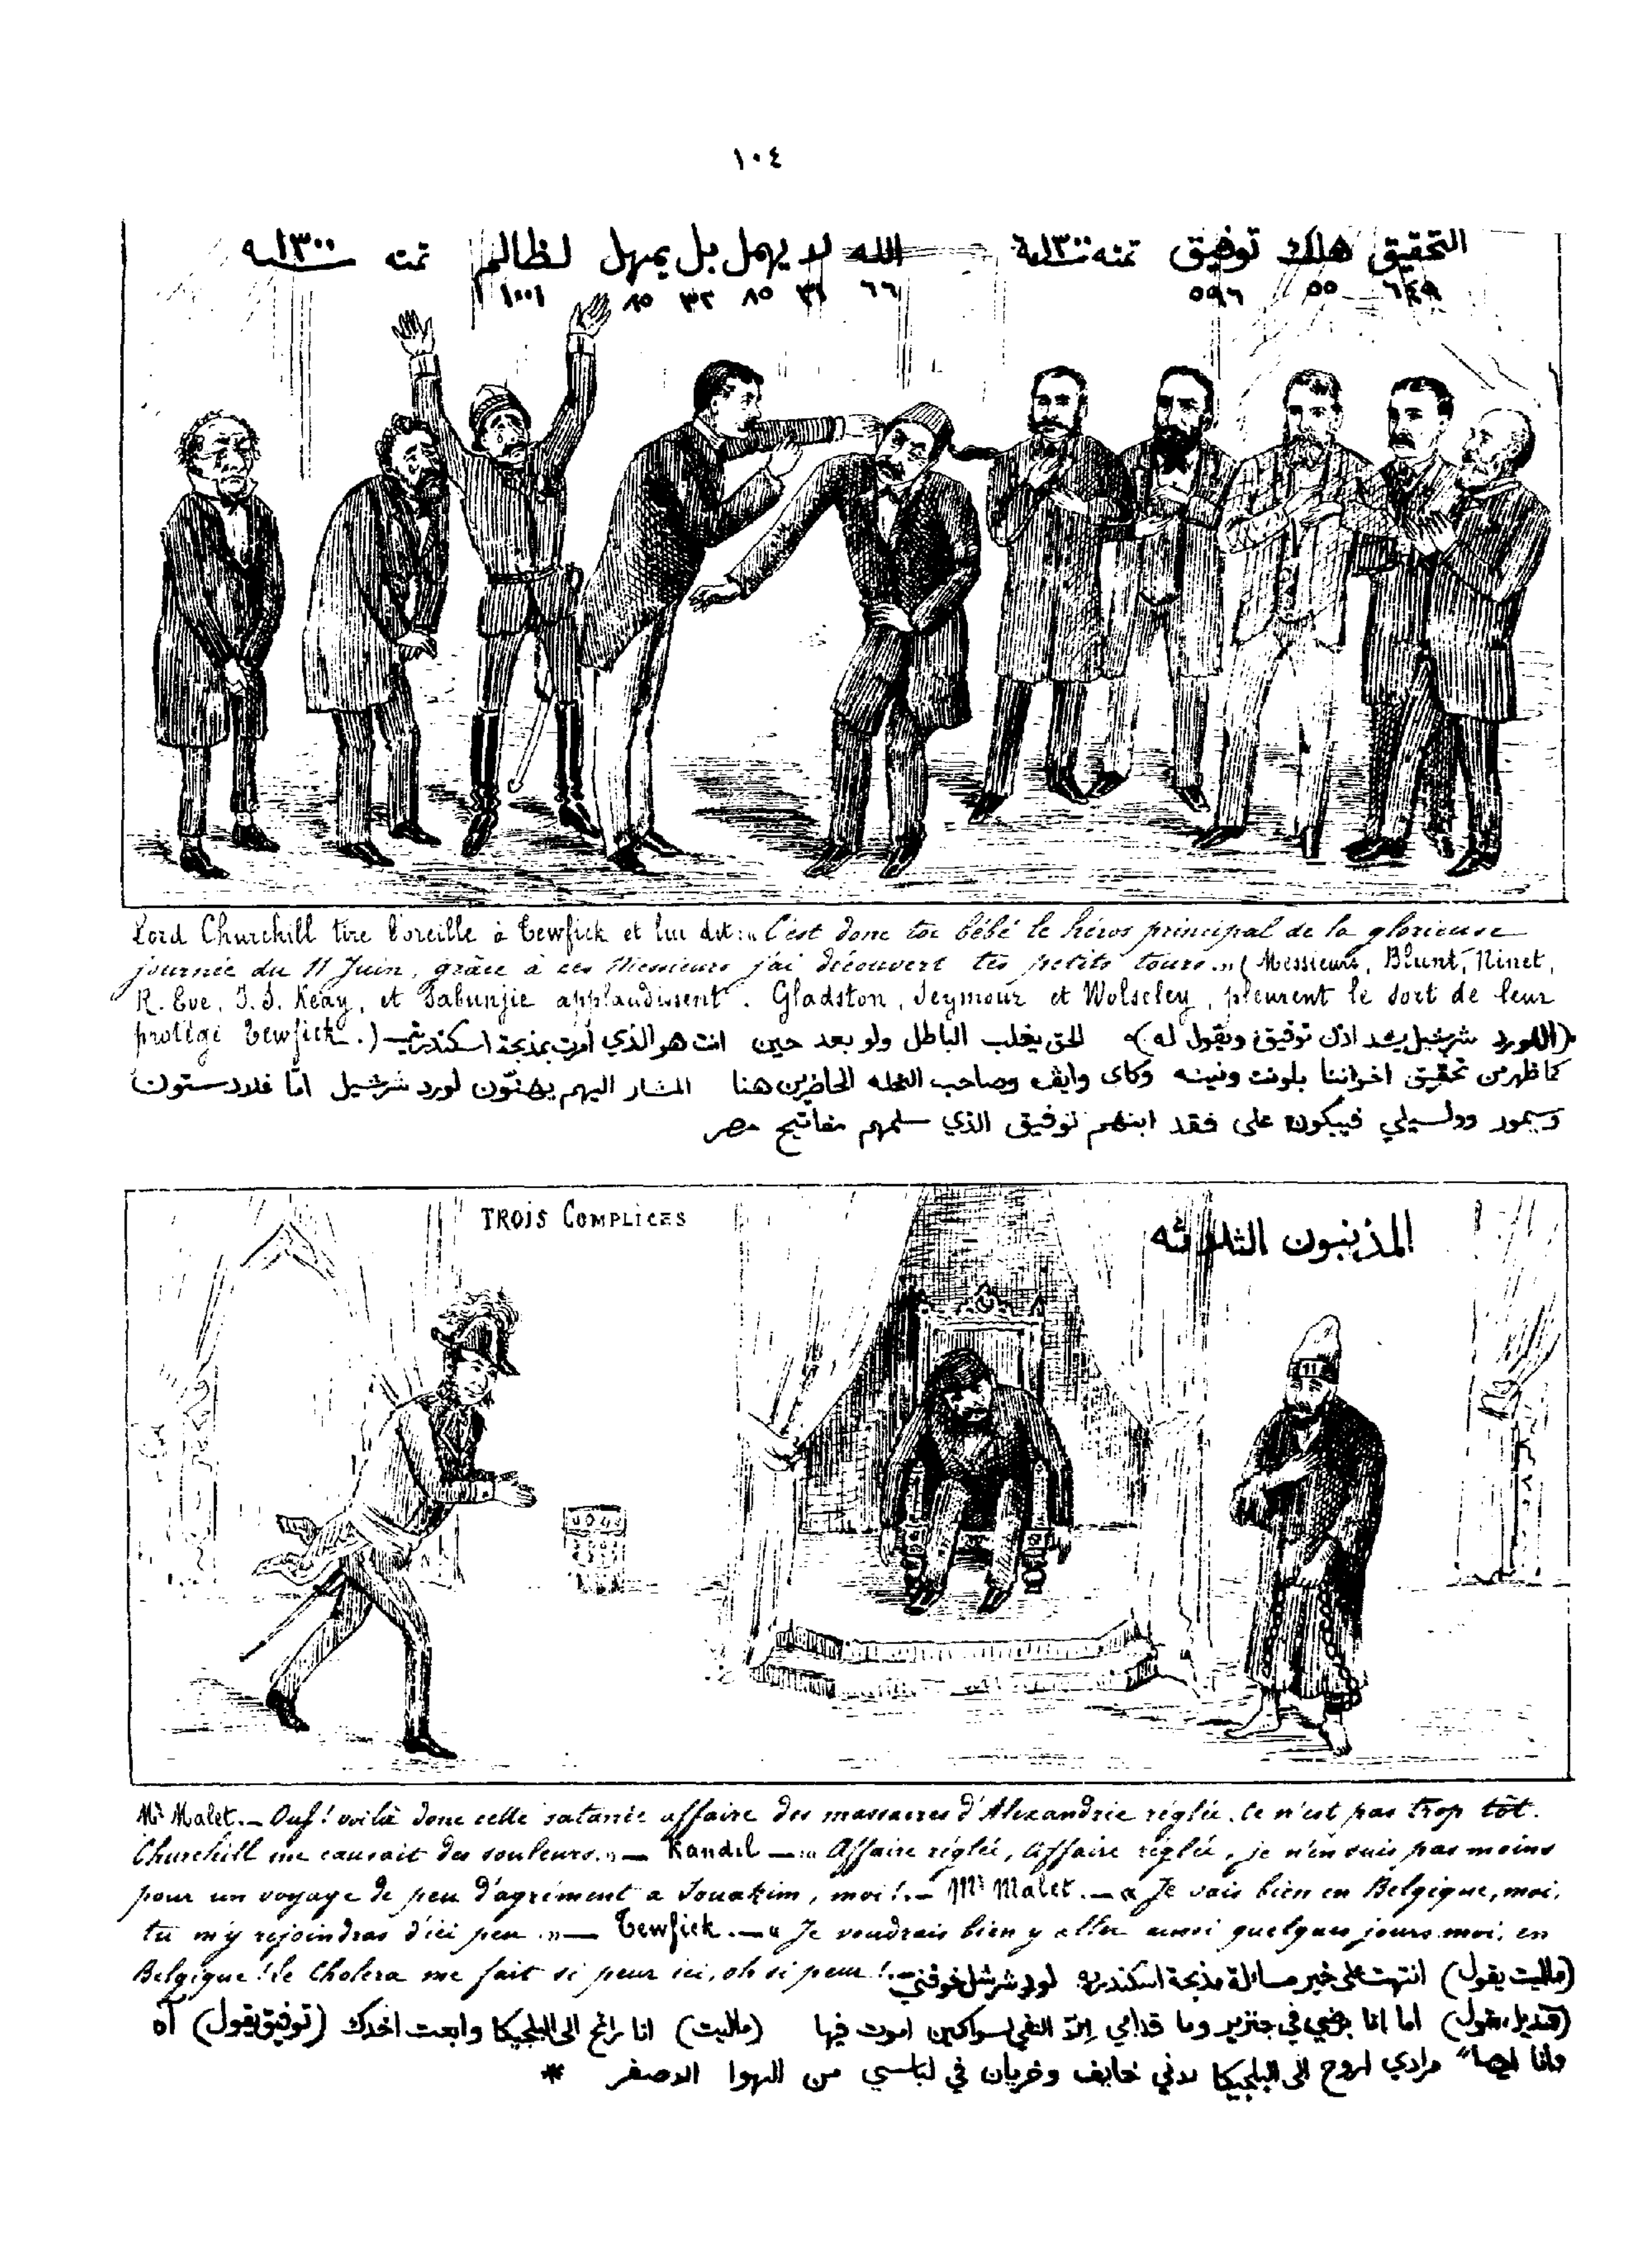 ١٠٤
التحقيق هلك توفيق تمنه ١٣٠٠ سنة الله لا يهمل بل يمهل لظالم تمنه ١٣٠٠ سنه
٦٤٩ ٥٥ ٥٩٦ ٦٦ ٣١ ٨٥ ٣٢ ٨٥ ١٠٠١
Lord Churchill tire l'oreille à Tewfick et lui dit: « C'est donc toi bébé le héros principal de la glorieuse
journée du 11 Juin, grâce à ces Messieurs j'ai découvert tes petits tours. » (Messieurs, Blunt, Ninet,
R. Eve, J. S. Keay, et Sabunjie applaudissent. Gladston, Seymour et Wolseley, pleurent le sort de leur
protégé Tewfick.)
(اللورد شرشيل يشد اذن توفيق ويقول له) الحق يغلب الباطل ولو بعد حين انت هو الذي أمرت بمذبحة اسكندرية
كما ظهر من تحقيق اخواننا بلونت ونينه وكاى وايف وصاحب النحله الحاضرين هنا المشار اليهم يهنّون لورد شرشيل امّا غلادستون
وسيمور وولسيلي فيبكون على فقد ابنهم توفيق الذي سلمهم مفاتيح مصر
TROIS COMPLICES
المذنبون الثلاثه
Mr Malet. — Ouf! voilà donc cette satanée affaire des massacres d'Alexandrie réglée. Ce n'est pas trop tôt.
Churchill me causait des souleurs. » — Kandil — « Affaire réglée, affaire réglée, je n'en suis pas moins
pour un voyage de peu d'agrément a Souakim, moi! — Mr Malet. — « Je vais bien en Belgique, moi,
tu m'y rejoindras d'ici peu. » — Tewfick. — « Je voudrais bien y aller aussi quelques jours moi, en
Belgique! le Cholera me fait si peur ici, oh si peur!
(ماليت يقول) انتهت على خير مسائلة مذبحة اسكندريه لورد شرشل خوفني
(قنديل يقول) اما انا برضي في جنزير وما قدامي إلاّ النفي لسواكين اموت فيها (ماليت) انا رائح الى البلجيكا وابعت اخدك (توفيق يقول) آه
وانا ايضا" مرادي اروح الى البلجيكا لاني خايف وخريان في لباسي من الهوا الاصفر *